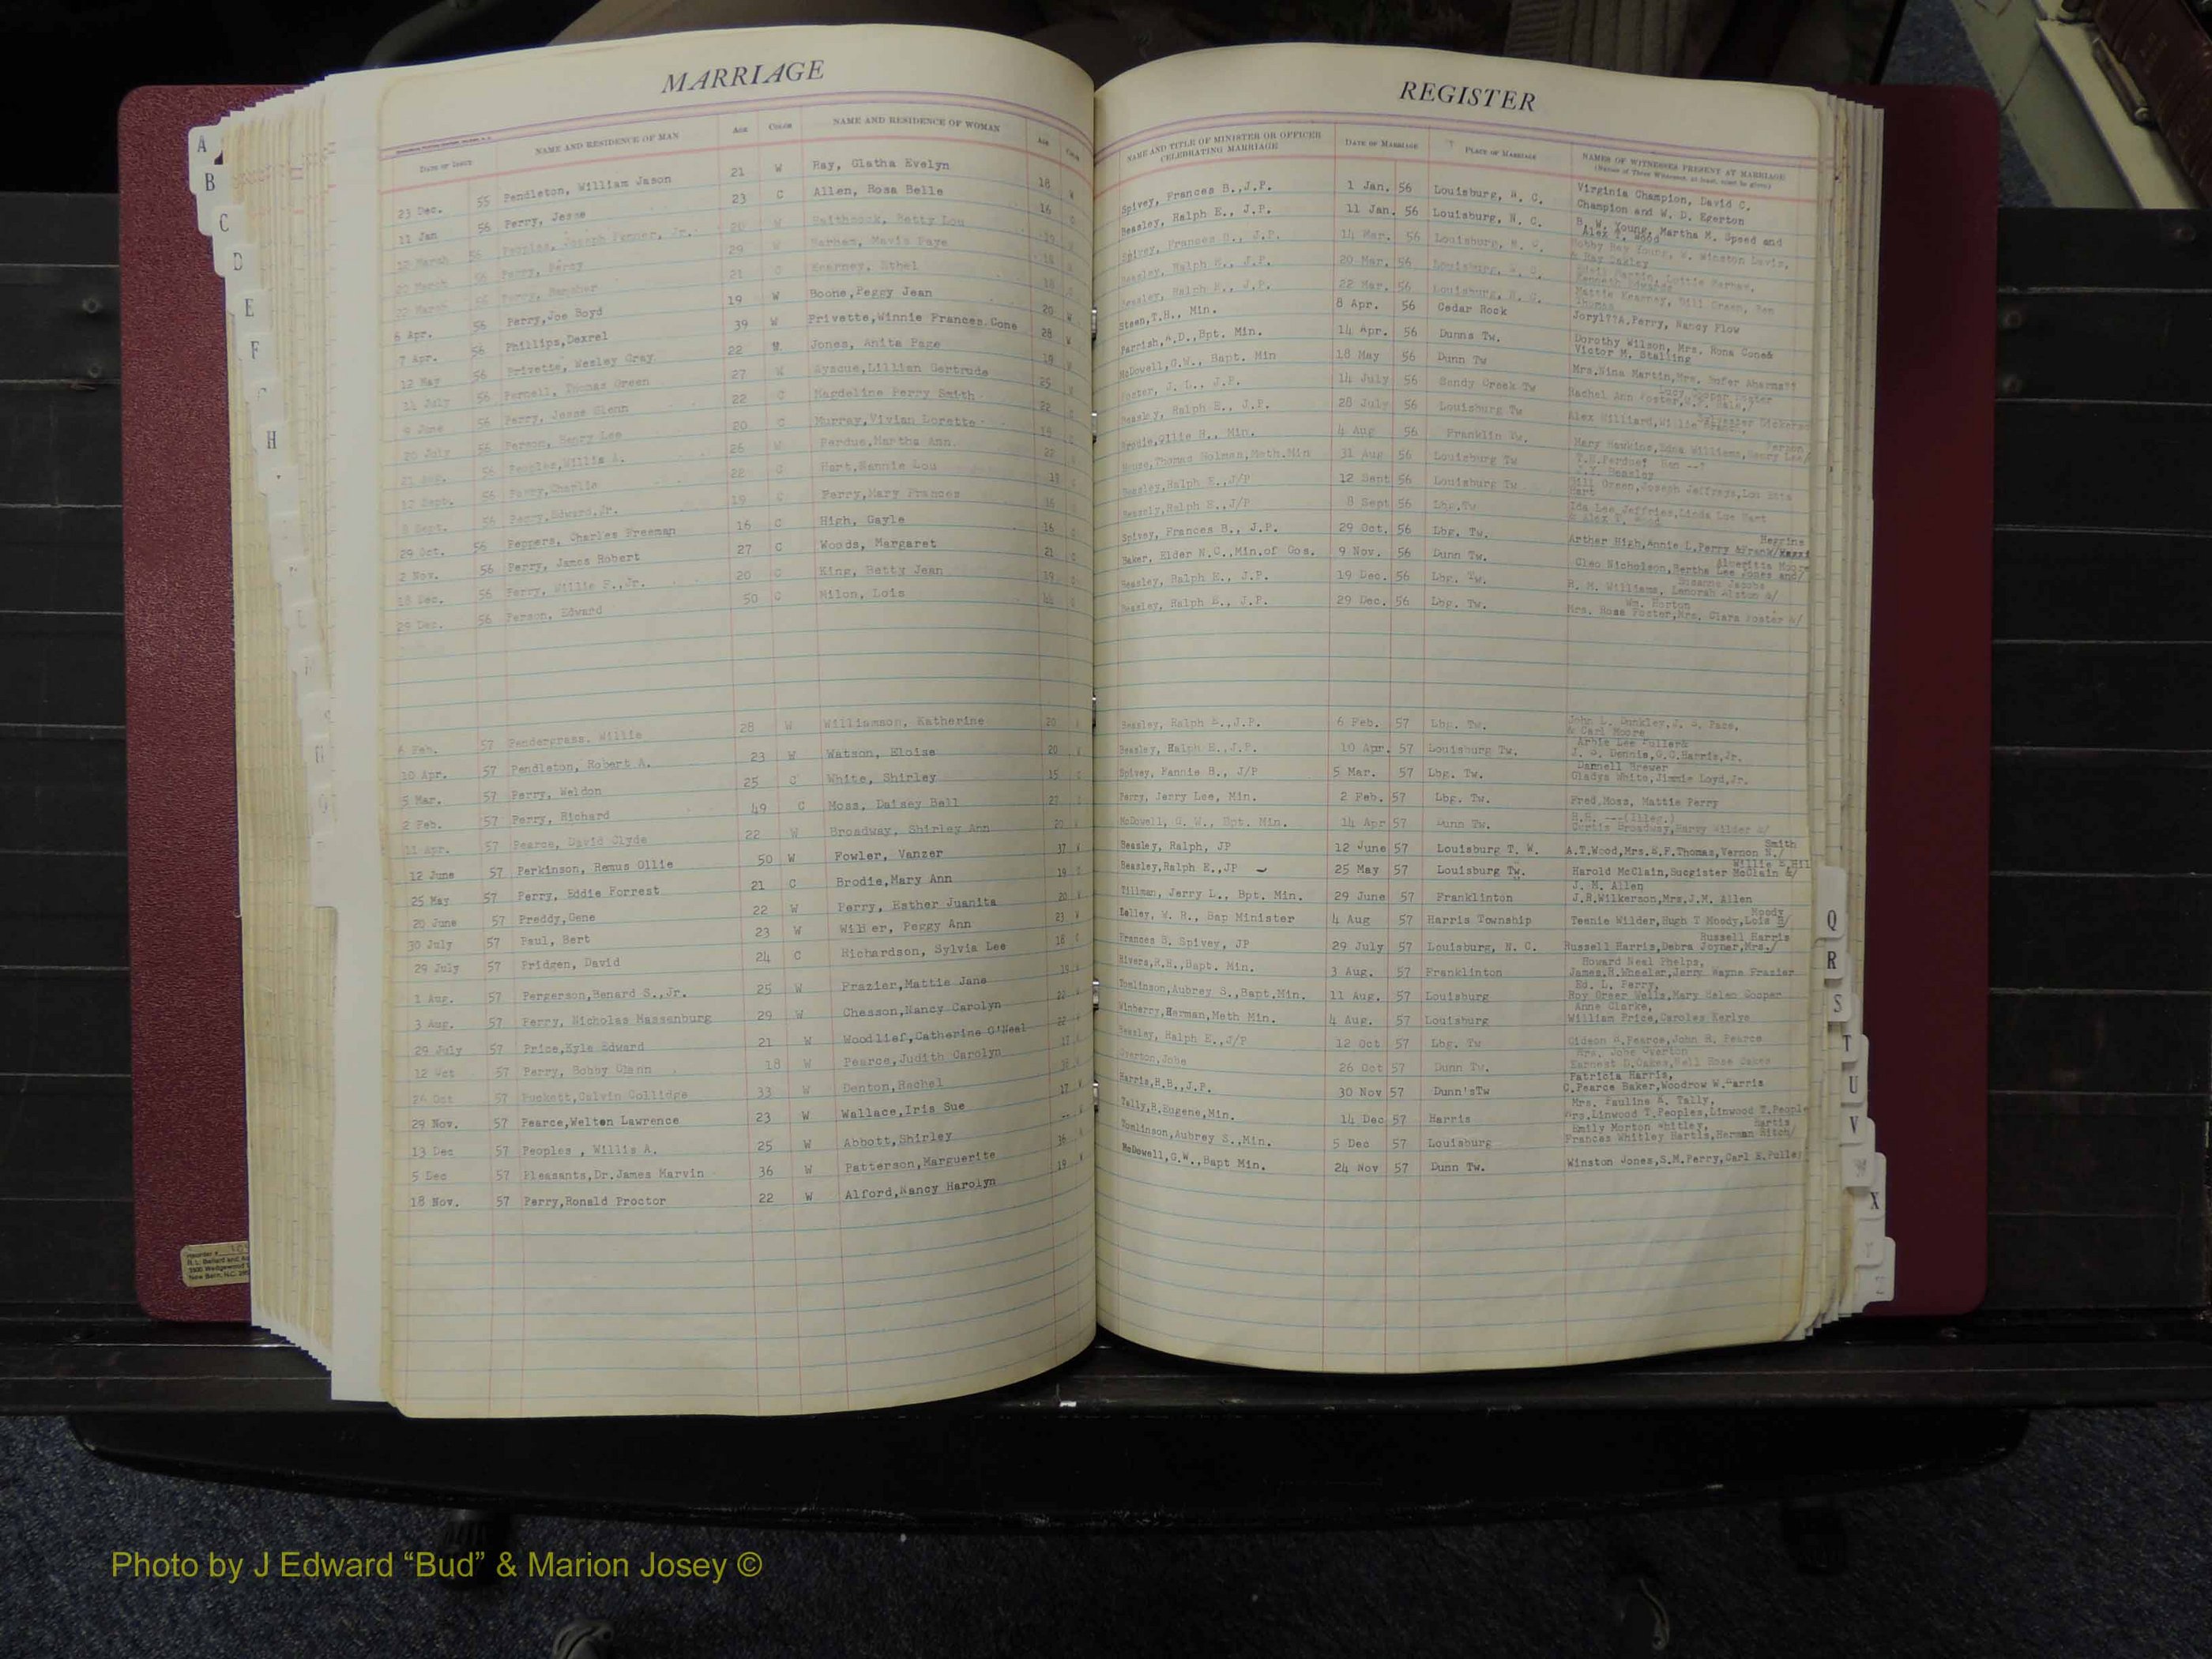 MARRIAGE
DATE OF ISSUE NAME AND RESIDENCE OF MAN AGE COLOR NAME AND RESIDENCE OF WOMAN AGE COLOR
23 Dec. 55 Pendleton, William Jason 21 W Ray, Glatha Evelyn 18 W
11 Jan 56 Perry, Jesse 23 C Allen, Rosa Belle 16 C
12 March 56 Peoples, Joseph Fenner, Jr. 20 W Faithcock, Betty Lou 19
20 March 56 Perry, Percy 29 W Barham, Mavis Faye 18
22 March 56 Perry, 21 C Kearney, Ethel 18 C
6 Apr. 56 Perry,Joe Boyd 19 W Boone,Peggy Jean 20 W
7 Apr. 56 Phillips,Dexrel 39 W Privette,Winnie Frances Cone 28 W
12 May 56 Privette, Wesley Gray 22 W Jones, Anita Page 19
11 July 56 Pernell, Thomas Green 27 W Ayscue,Lillian Gertrude 25
9 June 56 Perry, Jesse Glenn 22 C Magdeline Perry Smith 22 C
20 July 56 Person, Henry Lee 20 C Murray,Vivian Lorette 18 C
21 Aug. 56 Peoples,Willis A. 26 W Perdue,Martha Ann 22
12 Sept. 56 Perry,Charlie 22 C Hart,Nannie Lou 19
8 Sept. 56 Perry,Edward,Jr. 19 C Perry,Mary Frances 16
29 Oct. 56 Peppers, Charles Freeman 16 C High, Gayle 16 C
2 Nov. 56 Perry, James Robert 27 C Woods, Margaret 21 C
18 Dec. 56 Perry, Willie F.,Jr. 20 C King, Betty Jean 19 C
29 Dec. 56 Person, Edward 50 C Milon, Lois 44 C
6 Feb. 57 Pendergrass, Willie 28 W Williamson, Katherine 20
10 Apr. 57 Pendleton, Robert A. 23 W Watson, Eloise 20
5 Mar. 57 Perry, Weldon 25 C White, Shirley 15 C
2 Feb. 57 Perry, Richard 49 C Moss, Daisey Bell 27
11 Apr. 57 Pearce, David Clyde 22 W Broadway, Shirley Ann 20
12 June 57 Perkinson, Remus Ollie 50 W Fowler, Vanzer 37
25 May 57 Perry, Eddie Forrest 21 C Brodie,Mary Ann 19
20 June 57 Preddy,Gene 22 W Perry, Esther Juanita 20
30 July 57 Paul, Bert 23 W Wilder, Peggy Ann 23
29 July 57 Pridgen, David 24 C Richardson, Sylvia Lee 18
1 Aug. 57 Pergerson,Benard S.,Jr. 25 W Frazier,Mattie Jane 19
3 Aug. 57 Perry, Nicholas Massenburg 29 W Chesson,Nancy Carolyn 22
29 July 57 Price,Kyle Edward 21 W Woodlief,Catherine O'Neal 22
12 Oct 57 Perry, Bobby Glenn 18 W Pearce,Judith Carolyn 17
26 Oct 57 Puckett,Calvin Collidge 33 W Denton,Rachel
29 Nov. 57 Pearce,Welton Lawrence 23 W Wallace,Iris Sue 17
13 Dec 57 Peoples , Willis A. 25 W Abbott,Shirley
5 Dec 57 Pleasants,Dr.James Marvin 36 W Patterson,Marguerite 36
18 Nov. 57 Perry,Ronald Proctor 22 W Alford,Nancy Harolyn 19
REGISTER
NAME AND TITLE OF MINISTER OR OFFICER CELEBRATING MARRIAGE DATE OF MARRIAGE PLACE OF MARRIAGE NAMES OF WITNESSES PRESENT AT MARRIAGE
(Names of Three Witnesses, at least, must be given)
Spivey, Frances B.,J.P. 1 Jan. 56 Louisburg, N. C. Virginia Champion, David C. Champion and W. D. Egerton
Beasley, Ralph E., J.P. 11 Jan. 56 Louisburg, N. C. B. W. Young, Martha M. Speed and Alex T. Wood
Spivey, Frances B., J.P. 14 Mar. 56 Louisburg, N. C. Bobby Ray Young, W. Winston Davis, & Ray Oakley
Beasley, Ralph E., J.P. 20 Mar. 56 Louisburg, N. C. Martin, Lottie Kenneth Edwards
Beasley, Ralph E., J.P. 22 Mar. 56 Louisburg, N. C. Mattie Kearney, Bill Green, Ben Thomas
Steen,T.H., Min. 8 Apr. 56 Cedar Rock Joryl??A.Perry, Nancy Flow
Parrish,A.D.,Bpt. Min. 14 Apr. 56 Dunns Tw. Dorothy Wilson, Mrs. Nona Cone& Victor M. Stalling
McDowell,G.W., Bapt. Min 18 May 56 Dunn Tw Mrs.Nina Martin,Mrs. Bufer Aharms??
Foster, J. L., J.P. 14 July 56 Sandy Creek Tw Rachel Ann Foster,
Beasley, Ralph E., J.P. 28 July 56 Louisburg Tw Alex Williard,Willie
Brodie,Ollie H., Min. 4 Aug 56 Franklin Tw. Mary Hawkins,Edna Williams,Henry Lee/ Person
House,Thomas Holman,Meth.Min 31 Aug 56 Louisburg Tw T.H.Perdue? Ben --? J.Y. Beasley
Beasley,Ralph E.,J/P 12 Sept 56 Louisburg Tw Bill Green,Joseph Jeffreys,Lou Hart
Beasley,Ralph E.,J/P 8 Sept 56 Lbg.Tw Ida Lee Jeffries,Linda Lue Hart & Alex T. Wood
Spivey, Frances B., J.P. 29 Oct. 56 Lbg. Tw. Arther High,Annie L.Perry &Frank/ Heggins
Baker, Elder N.C.,Min.of Gos. 9 Nov. 56 Dunn Tw. Cleo Nicholson,Bertha Lee Jones and/ Moore
Beasley, Ralph E., J.P. 19 Dec. 56 Lbg. Tw. R. M. Williams, Lenorah Alston &/ Susanne Jacobs
Beasley, Ralph E., J.P. 29 Dec. 56 Lbg. Tw. Mrs. Rosa Foster,Mrs. Clara Foster &/ Wm. Horton
Beasley, Ralph E.,J.P. 6 Feb. 57 Lbg. Tw. John L. Dunkley,J. S. Pace, & Carl Moore
Beasley, Ralph E.,J.P. 10 Apr. 57 Louisburg Tw. Arbie Lee Fuller& J. S. Dennis,G.C.Harris,Jr.
Spivey, Fannie B., J/P 5 Mar. 57 Lbg. Tw. Darnell Brewer Gladys White,Jimmie Loyd,Jr.
Perry, Jerry Lee, Min. 2 Feb. 57 Lbg. Tw. Fred,Moss, Mattie Perry
McDowell, G. W., Bpt. Min. 14 Apr 57 Dunn Tw. ---(illeg.) Curtis Broadway,Harry Wilder &/
Beasley, Ralph, JP 12 June 57 Louisburg T. W. A.T.Wood,Mrs.E.F.Thomas,Vernon N./ Smith
Beasley,Ralph E.,JP 25 May 57 Louisburg Tw. Harold McClain,Sucgister McClain &/
Tillman, Jerry L., Bpt. Min. 29 June 57 Franklinton J. M. Allen J.R.Wilkerson,Mrs.J.M. Allen
Kelley, W. R., Bap Minister 4 Aug 57 Harris Township Teenie Wilder,Hugh T Moody,Lois B/ Moody
Frances B. Spivey, JP 29 July 57 Louisburg, N. C. Russell Harris,Debra Joyner,Mrs./ Russell Harris
Rivers,R.H.,Bapt. Min. 3 Aug. 57 Franklinton Howard Neal Phelps, James.H.Wheeler,Jerry Wayne Frazier
Tomlinson,Aubrey S.,Bapt.Min. 11 Aug. 57 Louisburg Ed. L. Perry, Roy Greer Wells,Mary Helen Cooper
Winberry,Herman,Meth Min. 4 Aug. 57 Louisburg Anne Clarke, William Price,Caroles Kerlye
Beasley, Ralph E.,J/P 12 Oct 57 Lbg. Tw Gideon H.Pearce,John R. Pearce
Overton,Jobe 26 Oct 57 Dunn Tw. Mrs. Jobe Overton Earnest D.Oakes,Nell Rose Oakes
Harris,H.B.,J.P. 30 Nov 57 Dunn'sTw Patricia Harris, C.Pearce Baker,Woodrow W.Harris
Tally,R.Eugene,Min. 14 Dec 57 Harris Mrs. Pauline A. Tally, Mrs.Linwood T.Peoples,Linwood T.People
Tomlinson,Aubrey S.,Min. 5 Dec 57 Louisburg Emily Morton Whitley, Frances Whitley Hartis,Herman Ritch/ Hartis
McDowell,G.W.,Bapt Min. 24 Nov 57 Dunn Tw. Winston Jones,S.M.Perry,Carl E.Pulley
A
B
C
D
E
F
H
Q
R
S
T
U
V
W
X
Y
Z
Photo by J Edward “Bud” & Marion Josey ©